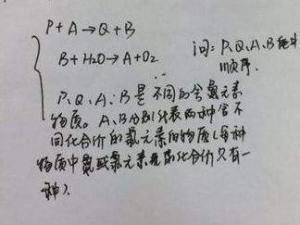 P + A → Q + B
B + H2O → A + O2
问: P、Q、A、B
顺序.
P、Q、A、B是不同的含氯元素
物质。A、B分别代表两种含不
同化合价的氯元素的物质(每种
物质中氯元素化合价只有一
种).